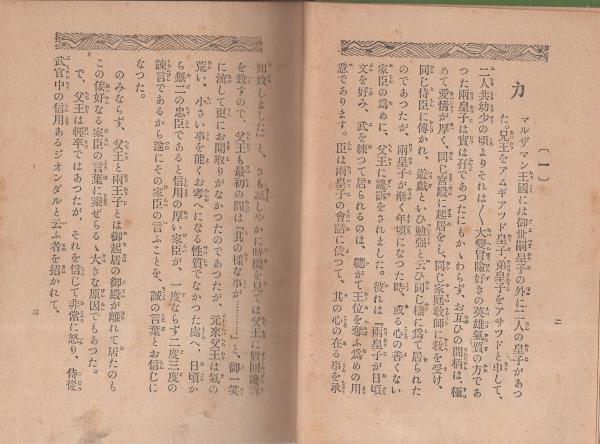 〔一〕
カマルザマン王國には御世嗣皇子の外に二人の皇子があつ
た。兄王をアムギアッド皇子弟皇子をアサッドと申して、
二人共幼少の頃よりそれは〱大變冒險好きの英雄氣質の方であ
つた。兩皇子は實は孖であつたにもかゝわらず、お互ひの間柄は、極
めて愛情が厚く、同じ宮殿に起居をし、同じ家庭教師に教を受け、
同じ侍臣に傅かれ、遊戯といひ勉强と云ひ同じ樣に爲て居られる
のであつたが、兩皇子が漸く年頃になつた時、或る心の善くない
家臣の爲めに、父王に讒訴をされました。彼れは『兩皇子が日頃
文を好み、武を練つて居られるのは、軈がて王位を奪ふ爲めの用
意であります。臣は兩皇子の會話に依つて、其の心の在る事を承
二
知致しました』と、さも誠しやかに時機を見ては父王に數回讒訴
を致すので、父王も最初の間は『其の樣な事が………』と、御一笑
に流して更にお聞取りがなかつたのであつたが、元來父王は氣の
荒い、小さい事を能くお考へになる性質でなかつた處へ、日頃か
ら無二の忠臣であると信用の厚い家臣が、一度ならず二度三度の
諫言であるから遂にその家臣の言ふことを、誠の言葉とお信じに
なつた。
のみならず、父王と兩王子とは御起居の御殿が離れて居たのも
この侫奸なる家臣の言葉に乘ぜらるゝ大きな原因でもあつた。
で、父王は輕卒ではあつたが、それを信じて非常に怒り、侍從
武官中の信用あるジオンダルと云ふ者を招かれて、